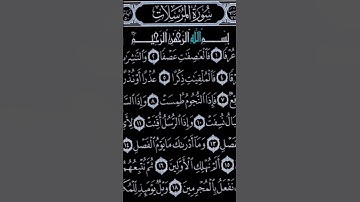 سُورَةُ المُرْسَلَاتِ
بِسْمِ اللَّهِ الرَّحْمَٰنِ الرَّحِيمِ
عُرْفًا ١ فَالْعَٰصِفَٰتِ عَصْفًا ٢ وَالنَّٰشِرَٰتِ
فَالْمُلْقِيَٰتِ ذِكْرًا ٥ عُذْرًا أَوْ نُذْرًا
٧ فَإِذَا النُّجُومُ طُمِسَتْ ٨ وَإِذَا
نُسِفَتْ ١٠ وَإِذَا الرُّسُلُ أُقِّتَتْ ١١
١٣ وَمَا أَدْرَىٰكَ مَا يَوْمُ الْفَصْلِ ١٤
١٥ أَلَمْ نُهْلِكِ الْأَوَّلِينَ ١٦ ثُمَّ نُتْبِعُهُمُ
نَفْعَلُ بِالْمُجْرِمِينَ ١٨ وَيْلٌ يَوْمَئِذٍ